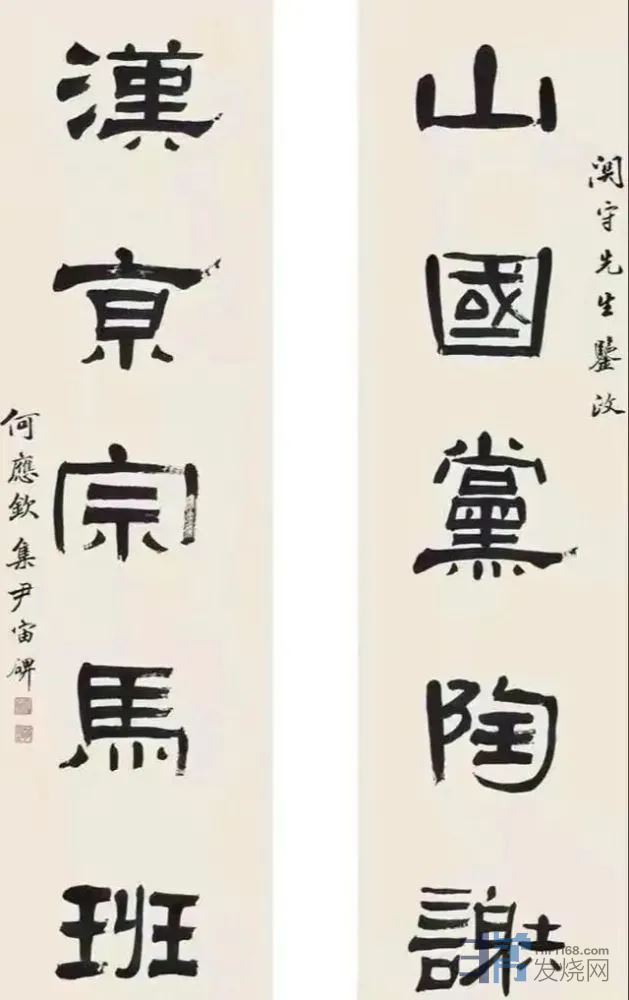 守先生鑒政
山國黨陶謝
漢亰宗馬班
何應欽集尹宙碑
HIFI168.com
发烧网